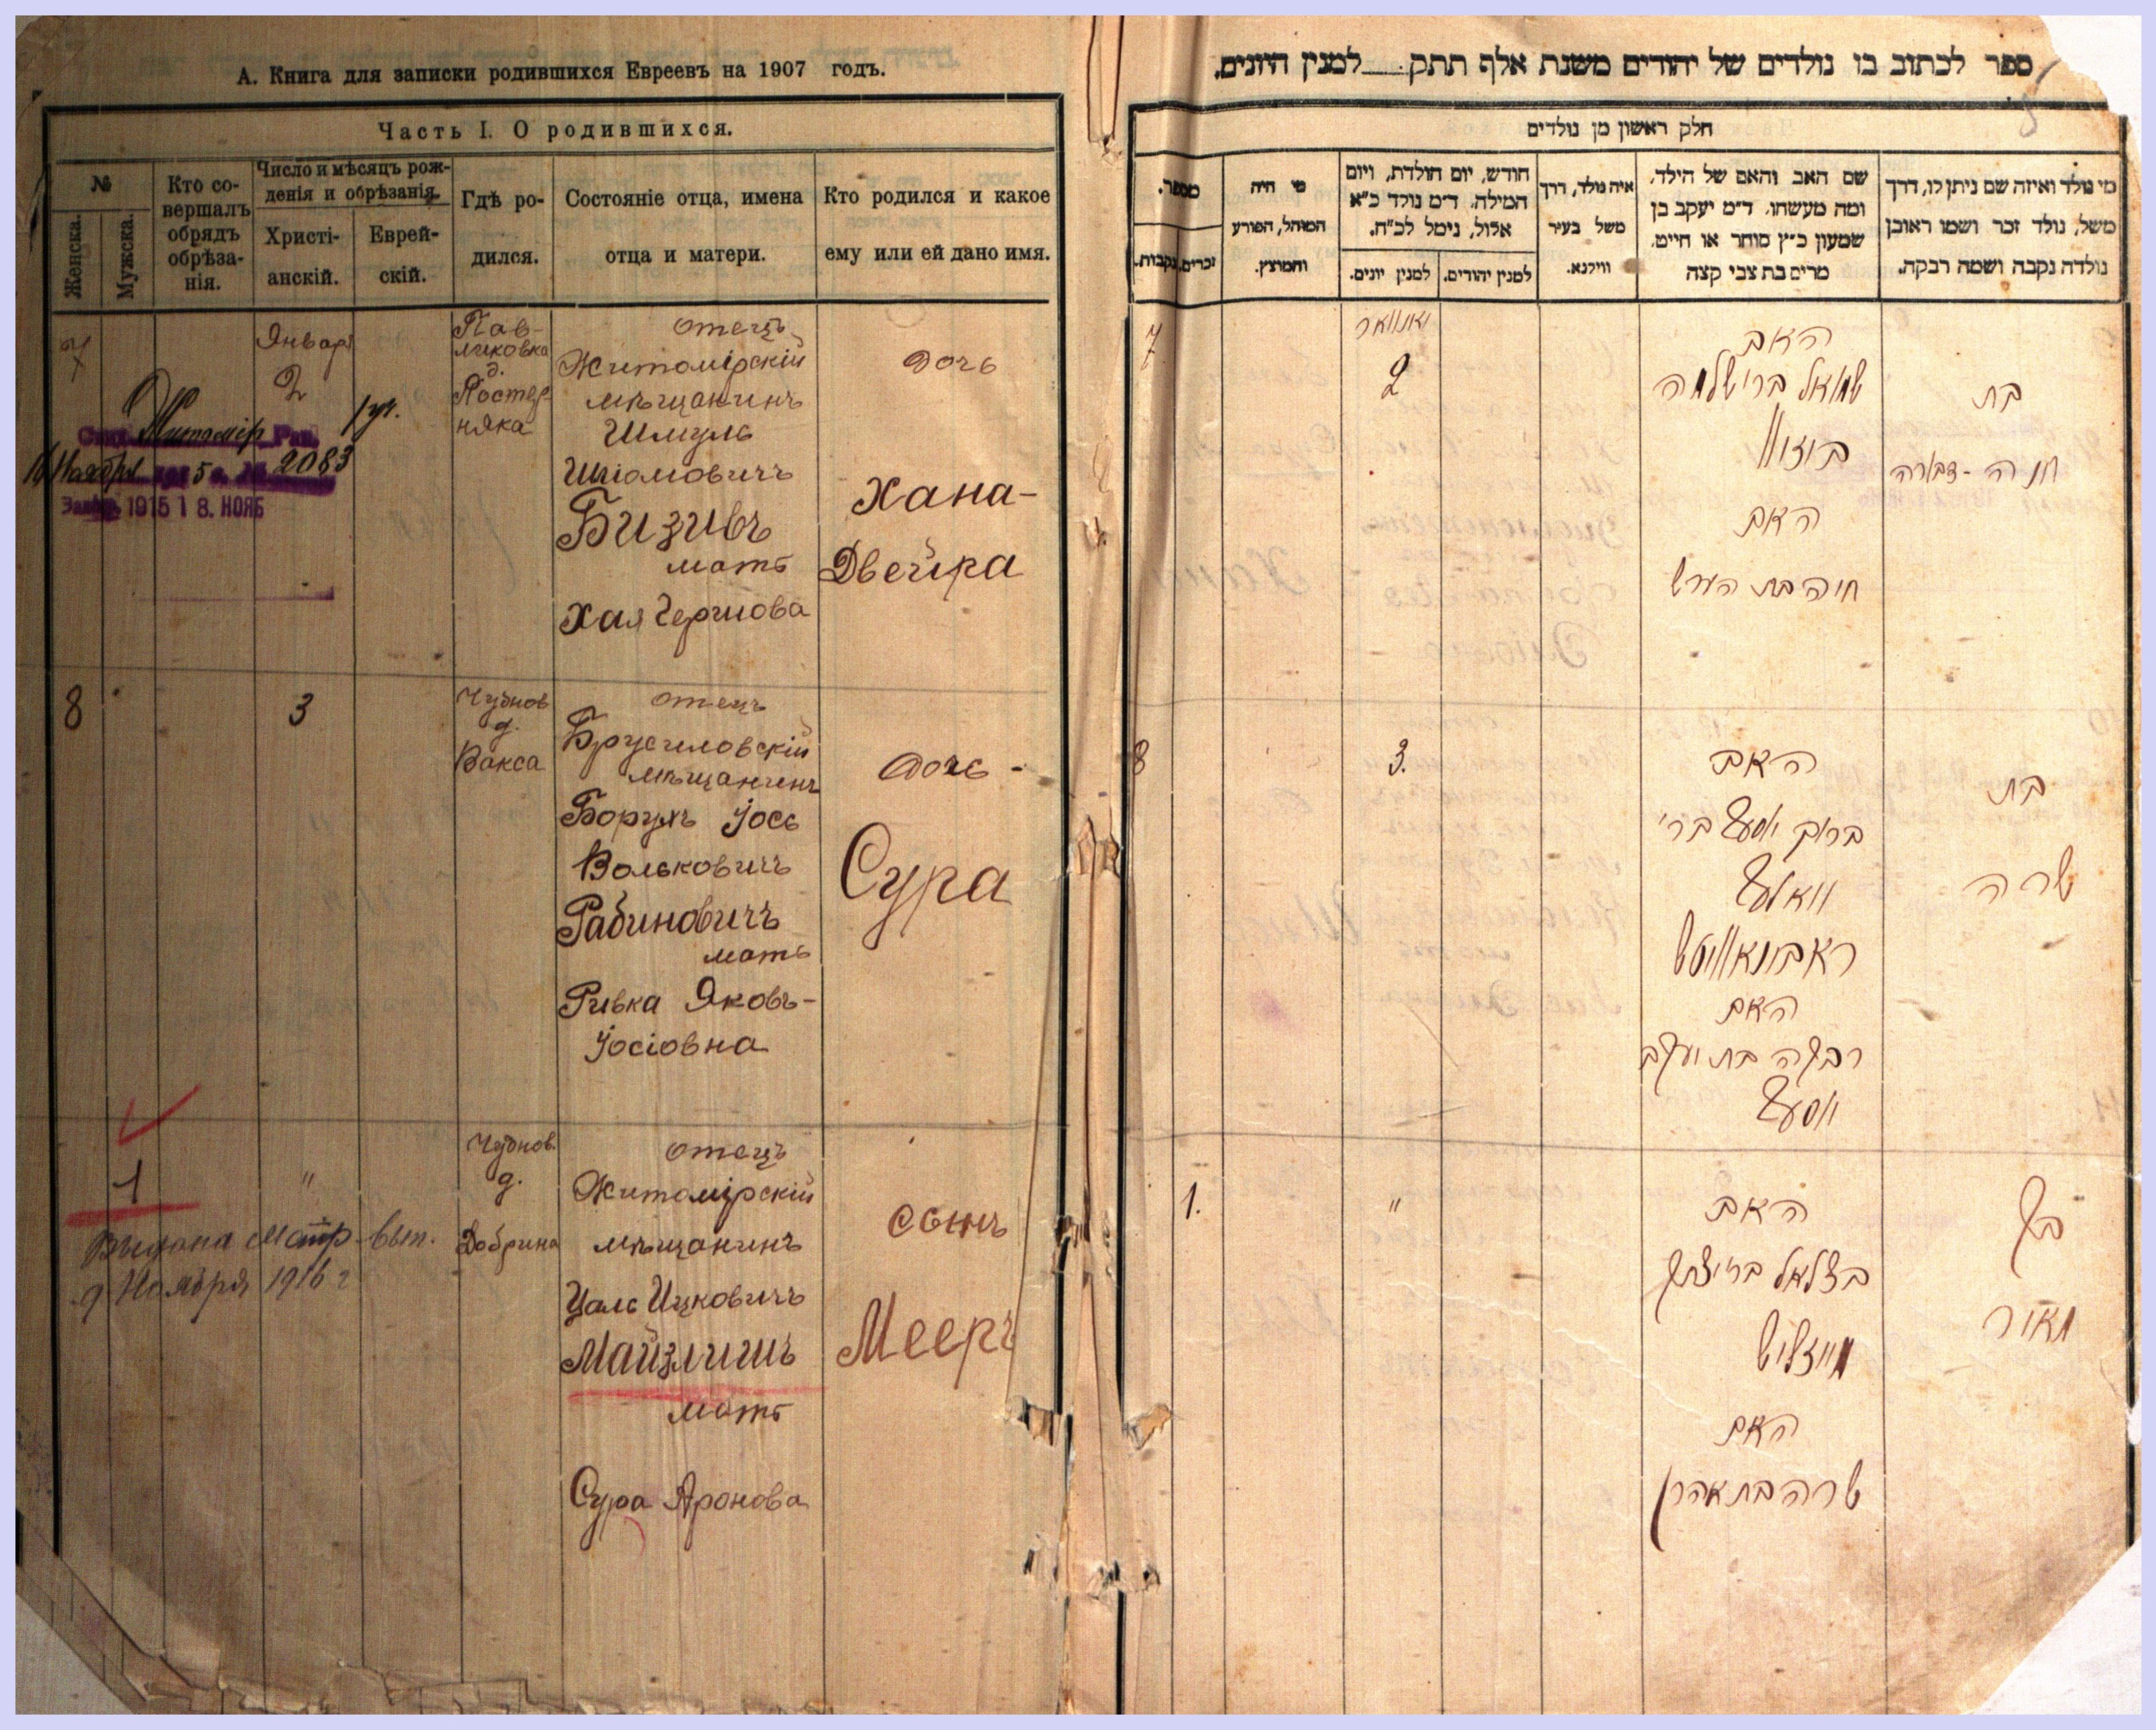 А. Книга для записки родившихся Евреевъ на 1907 годъ.
Часть I. О родившихся.
№
Женска.
Мужска.
Кто со-
вершалъ
обрядъ
обрѣза-
нія.
Число и мѣсяцъ рож-
денія и обрѣзанія.
Христі-
анскій.
Еврей-
скій.
Гдѣ ро-
дился.
Состояніе отца, имена
отца и матери.
Кто родился и какое
ему или ей дано имя.
7
Январ
2
Житомір Рав.
2083
1915 18. НОЯБ
Пав-
ликовка
д.
Костер
няка
отецъ
Житомірскій
мѣщанинъ
Шмуль
Шліомовичъ
Бизивъ
мать
Хая Гершова
дочь
Хана-
Двейра
8
3
Чуднов
д.
Вакса
отецъ
Брусиловскій
мѣщанинъ
Борухъ Іось
Вольковичъ
Рабиновичъ
мать
Ривка Яковъ-
Іосіовна
дочь -
Сура
1
"
Выдана Метр вып.
9 Ноября 1916 г
Чуднов.
д.
Добрина
отецъ
Житомірскій
мѣщанинъ
Цаль Ицковичъ
Майзлишъ
мать
Сура Аронова
сынъ
Мееръ
ספר לכתוב בו נולדים של יהודים משנת אלף תתק למנין היונים.
חלק ראשון מן נולדים
מי נולד ואיזה שם ניתן לו, דרך
משל, נולד זכר ושמו ראובן
נולדה נקבה ושמה רבקה.
שם האב והאם של הילד,
ומה מעשהו. ד״מ יעקב בן
שמעון כ״ץ סוחר או חייט,
מרים בת צבי קצה
איה נולד, דרך
משל בעיר
ווילנא.
חודש, יום הולדת, ויום
המילה. ד״מ נולד כ״א
אלול, נימל לכ״ח.
למנין יהודים.
למנין יונים.
מי היה
המוהל, הפורע
והמוצץ.
מספר.
זכרים.
נקבות.
7
יאנוואר
2
האב
שמואל בר׳ שלמה
ביזוו
האם
חיה בת הערש
בת
חנה-דבורה
8
3.
האב
ברוך יוסף בר׳
וואלף
ראבינאוויטש
האם
רבקה בת יעקב
יוסף
בת
שרה
1.
"
האב
בצלאל בר׳ יצחק
מייזליש
האם
שרה בת אהרן
בן
מאיר